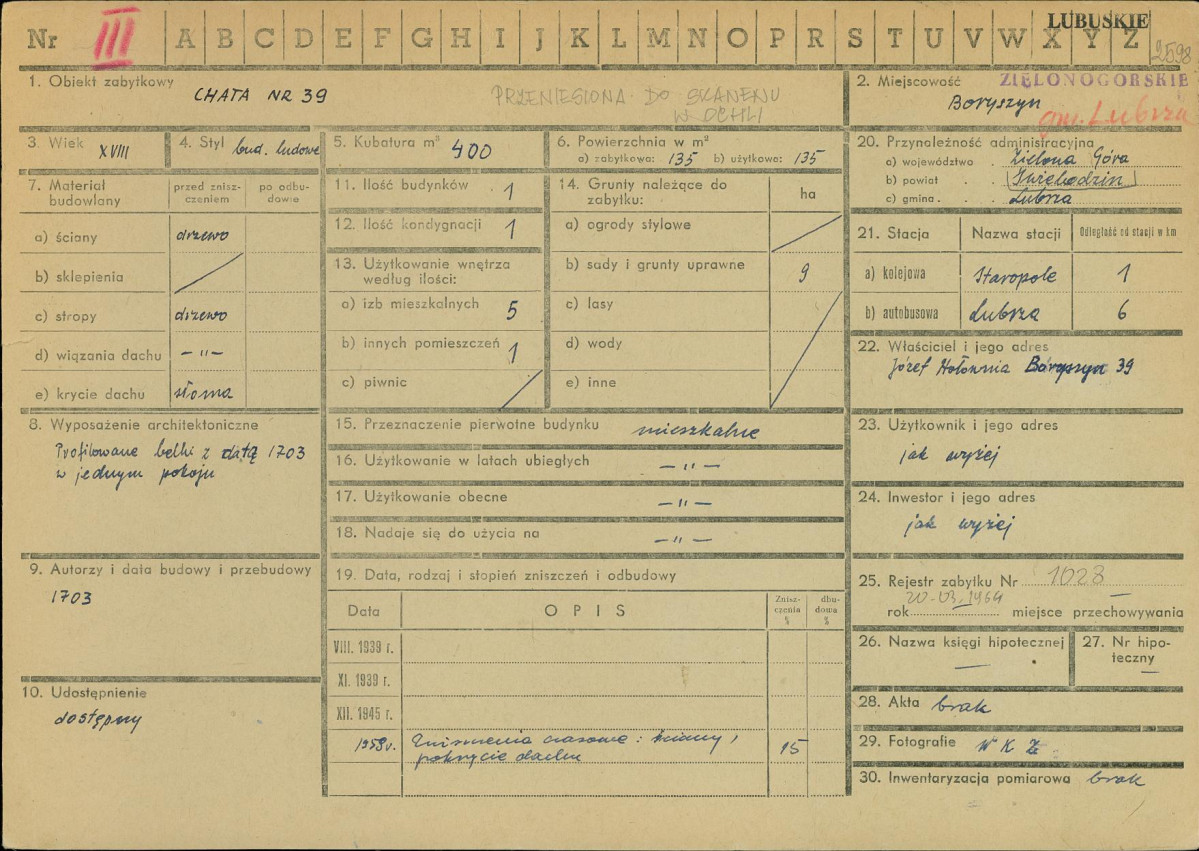 Nr III A B C D E F G H I J K L M N O P R S T U V W X Y Z
LUBUSKIE
2598
1. Obiekt zabytkowy
CHATA NR 39
PRZENIESIONA DO SKANENU
W OCHLI
2. Miejscowość
ZIELONOGÓRSKIE
Boryszyn
gm. Lubrza
3. Wiek XVIII
4. Styl bud. ludowe
5. Kubatura m³ 400
6. Powierzchnia w m²
a) zabytkowa: 135 b) użytkowa: 135
7. Materiał budowlany
przed zniszczeniem
po odbudowie
a) ściany drzewo
b) sklepienia
c) stropy drzewo
d) wiązania dachu — " —
e) krycie dachu słoma
8. Wyposażenie architektoniczne
Profilowane belki z datą 1703
w jednym pokoju
9. Autorzy i data budowy i przebudowy
1703
10. Udostępnienie
dostępny
11. Ilość budynków 1
12. Ilość kondygnacji 1
13. Użytkowanie wnętrza
według ilości:
a) izb mieszkalnych 5
b) innych pomieszczeń 1
c) piwnic
14. Grunty należące do
zabytku:
ha
a) ogrody stylowe
b) sady i grunty uprawne 9
c) lasy
d) wody
e) inne
15. Przeznaczenie pierwotne budynku mieszkalne
16. Użytkowanie w latach ubiegłych — " —
17. Użytkowanie obecne — " —
18. Nadaje się do użycia na — " —
19. Data, rodzaj i stopień zniszczeń i odbudowy
Data OPIS Zniszczenia % dbudowa %
VIII. 1939 r.
XI. 1939 r.
XII. 1945 r.
1958 r. Zniszczenia czasowe: ściany, 15
pokrycie dachu
20. Przynależność administracyjna
a) województwo Zielona Góra
b) powiat Świebodzin
c) gmina Lubrza
21. Stacja Nazwa stacji Odległość od stacji w km
a) kolejowa Staropole 1
b) autobusowa Lubrza 6
22. Właściciel i jego adres
Józef Hołownia Boryszyn 39
23. Użytkownik i jego adres
jak wyżej
24. Inwestor i jego adres
jak wyżej
25. Rejestr zabytku Nr 1028
rok 20-03-1964 miejsce przechowywania
26. Nazwa księgi hipotecznej
—
27. Nr hipoteczny
—
28. Akta brak
29. Fotografie W K Z
30. Inwentaryzacja pomiarowa brak